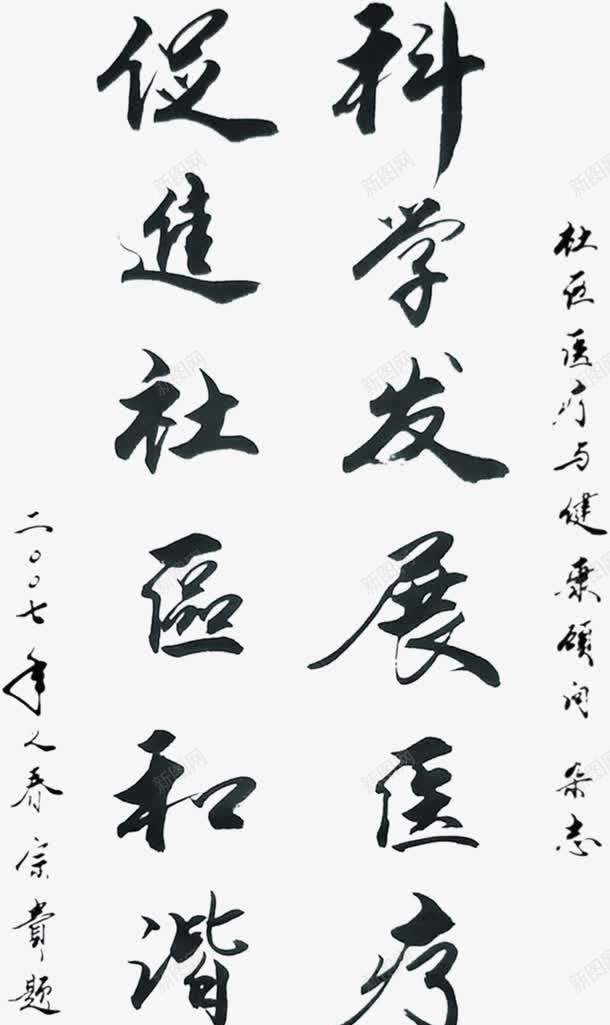 社区医疗与健康顾问 杂志
科学发展医疗
促進社區和谐
二〇〇七年春宗题
新图网